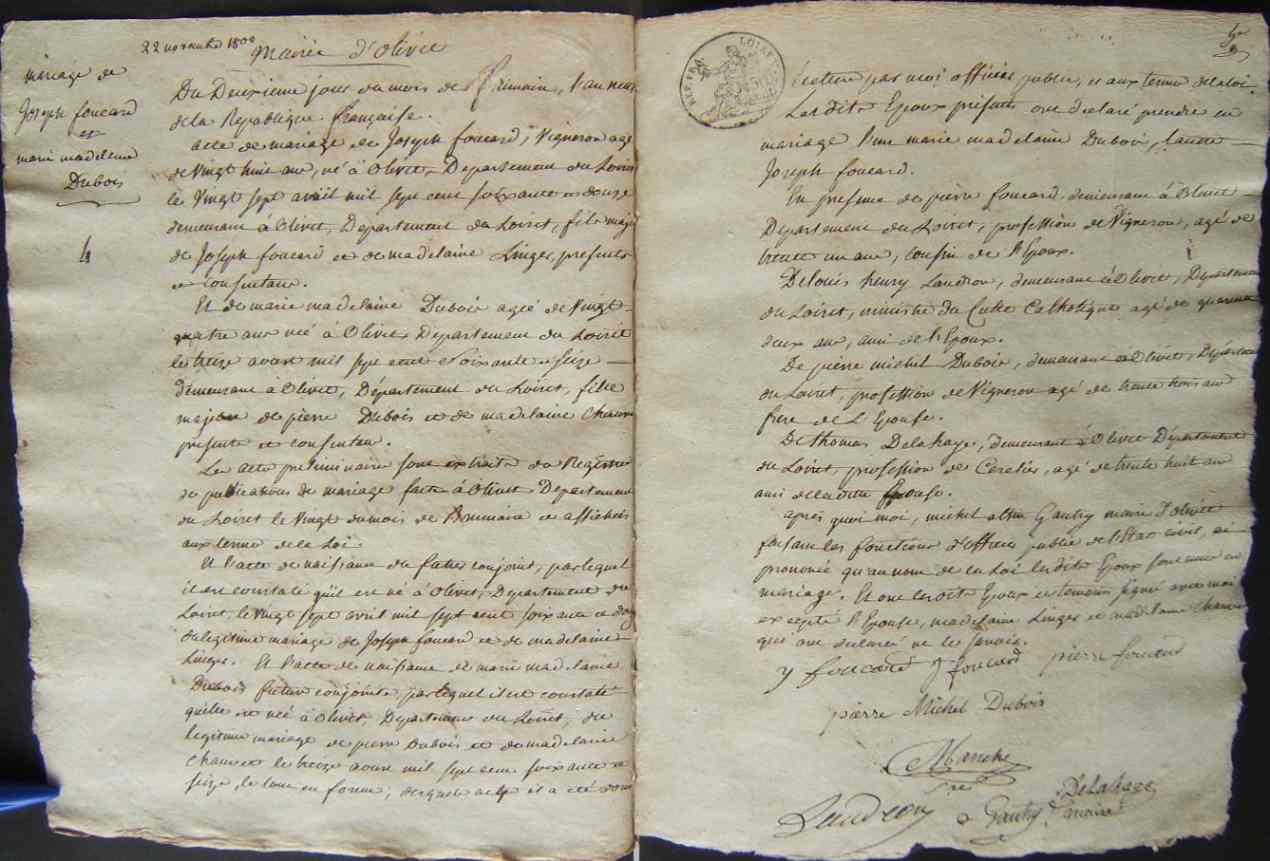 22 novembre 1800
Mairie d'Olivet
mariage de
Joseph foucard
et
marie madeleine
Dubois
4
Du Deuxieme jour du mois de frimaire, l'an neuf
de la Republique française.
acte de mariage de Joseph foucard, Vigneron agé
de Vingt huit ans, né à Olivet, Departement du Loiret
le Vingt sept avril mil sept cent soixante et douze
demeurant à Olivet, Département du Loiret, fils majeur
de Joseph foucard et de madelaine Linger, presents
et consentans.
Et de marie madelaine Dubois agée de Vingt
quatre ans née à Olivet Departement du Loiret
le treize aoust mil sept cent soixante et Seize
demeurant à Olivet, Département du Loiret, fille
majeure de pierre Dubois et de madelaine
presents et consentans.
Les actes preliminaires sont extraits du Registre
de publications de mariage faites à Olivet Departement
du Loiret le Vingt du mois de Brumaire et affichées
aux termes de la Loi.
Et l'acte de naissance du futur conjoint, par lequel
il est constaté qu'il est né à Olivet, Departement du
Loiret, le Vingt sept avril mil sept cent soixante et douze
du legitime mariage de Joseph foucard et de madelaine
Linger. Et l'acte de naissance de marie madelaine
Dubois future conjointe, par lequel il est constaté
qu'elle est née à Olivet, Departement du Loiret, du
legitime mariage de pierre Dubois et de madelaine
le treize aoust mil sept cent soixante et
seize, le tout en forme; desquels actes il a été donné
REP. FRA.
LOIRET
lecture par moi officier public, et aux termes de la loi.
Lesdits Epoux présents ont déclaré prendre en
mariage l'une marie madelaine Dubois, l'autre
Joseph foucard.
En presence de pierre foucard demeurant à Olivet
Département du Loiret, profession de Vigneron, agé de
trente un ans, cousin de l'Epoux.
De Louis henry Landron, demeurant à Olivet, Département
du Loiret, ministre du Culte Catholique agé de quarante
deux ans, ami de l'Epoux.
De pierre michel Dubois, demeurant à Olivet, Département
du Loiret, profession de Vigneron agé de trente trois ans
frere de l'Epouse.
De thomas Delahaye, demeurant à Olivet Département
du Loiret, profession de agé de trente huit ans
ami de ladite Epouse.
après quoi moi, michel Gautry maire d'olivet
faisant les fonctions d'officier public de l'Etat civil, ai
prononcé qu'au nom de la Loi lesdits Epoux sont unis en
mariage. Et ont lesdits Epoux et temoins signé avec moi
excepté l'Epouse, madelaine Linger et madelaine
qui ont declaré ne le savoir.
foucard foucard pierre foucard
pierre Michel Dubois
Delahaye
Landron Gautry maire